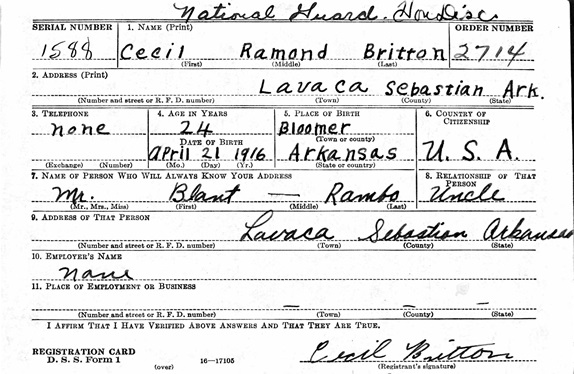 National Guard. Hon Disc
SERIAL NUMBER 1. NAME (Print) ORDER NUMBER
1588 Cecil Ramond Britton 2714
(First) (Middle) (Last)
2. ADDRESS (Print)
Lavaca Sebastian Ark.
(Number and street or R. F. D. number) (Town) (County) (State)
3. TELEPHONE 4. AGE IN YEARS 5. PLACE OF BIRTH 6. COUNTRY OF CITIZENSHIP
none 24 Bloomer
DATE OF BIRTH (Town or county)
April 21 1916 Arkansas U. S. A.
(Exchange) (Number) (Mo.) (Day) (Yr.) (State or country)
7. NAME OF PERSON WHO WILL ALWAYS KNOW YOUR ADDRESS 8. RELATIONSHIP OF THAT PERSON
Mr. Blant — Rambo Uncle
(Mr., Mrs., Miss) (First) (Middle) (Last)
9. ADDRESS OF THAT PERSON
Lavaca Sebastian Arkansas
(Number and street or R. F. D. number) (Town) (County) (State)
10. EMPLOYER'S NAME
None
11. PLACE OF EMPLOYMENT OR BUSINESS
— — —
(Number and street or R. F. D. number) (Town) (County) (State)
I AFFIRM THAT I HAVE VERIFIED ABOVE ANSWERS AND THAT THEY ARE TRUE.
REGISTRATION CARD
D. S. S. Form 1 (over) 16—17105
Cecil Britton
(Registrant's signature)